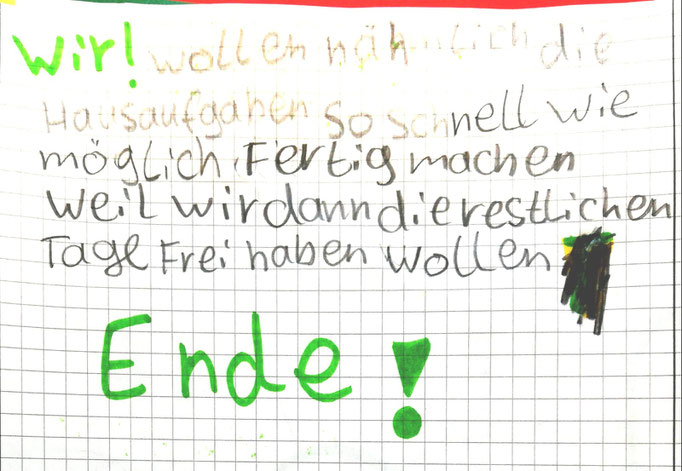 Wir! wollen nähmlich die
Hausaufgaben so schnell wie
möglich Fertig machen
weil wir dann die restlichen
Tage Frei haben wollen
Ende!